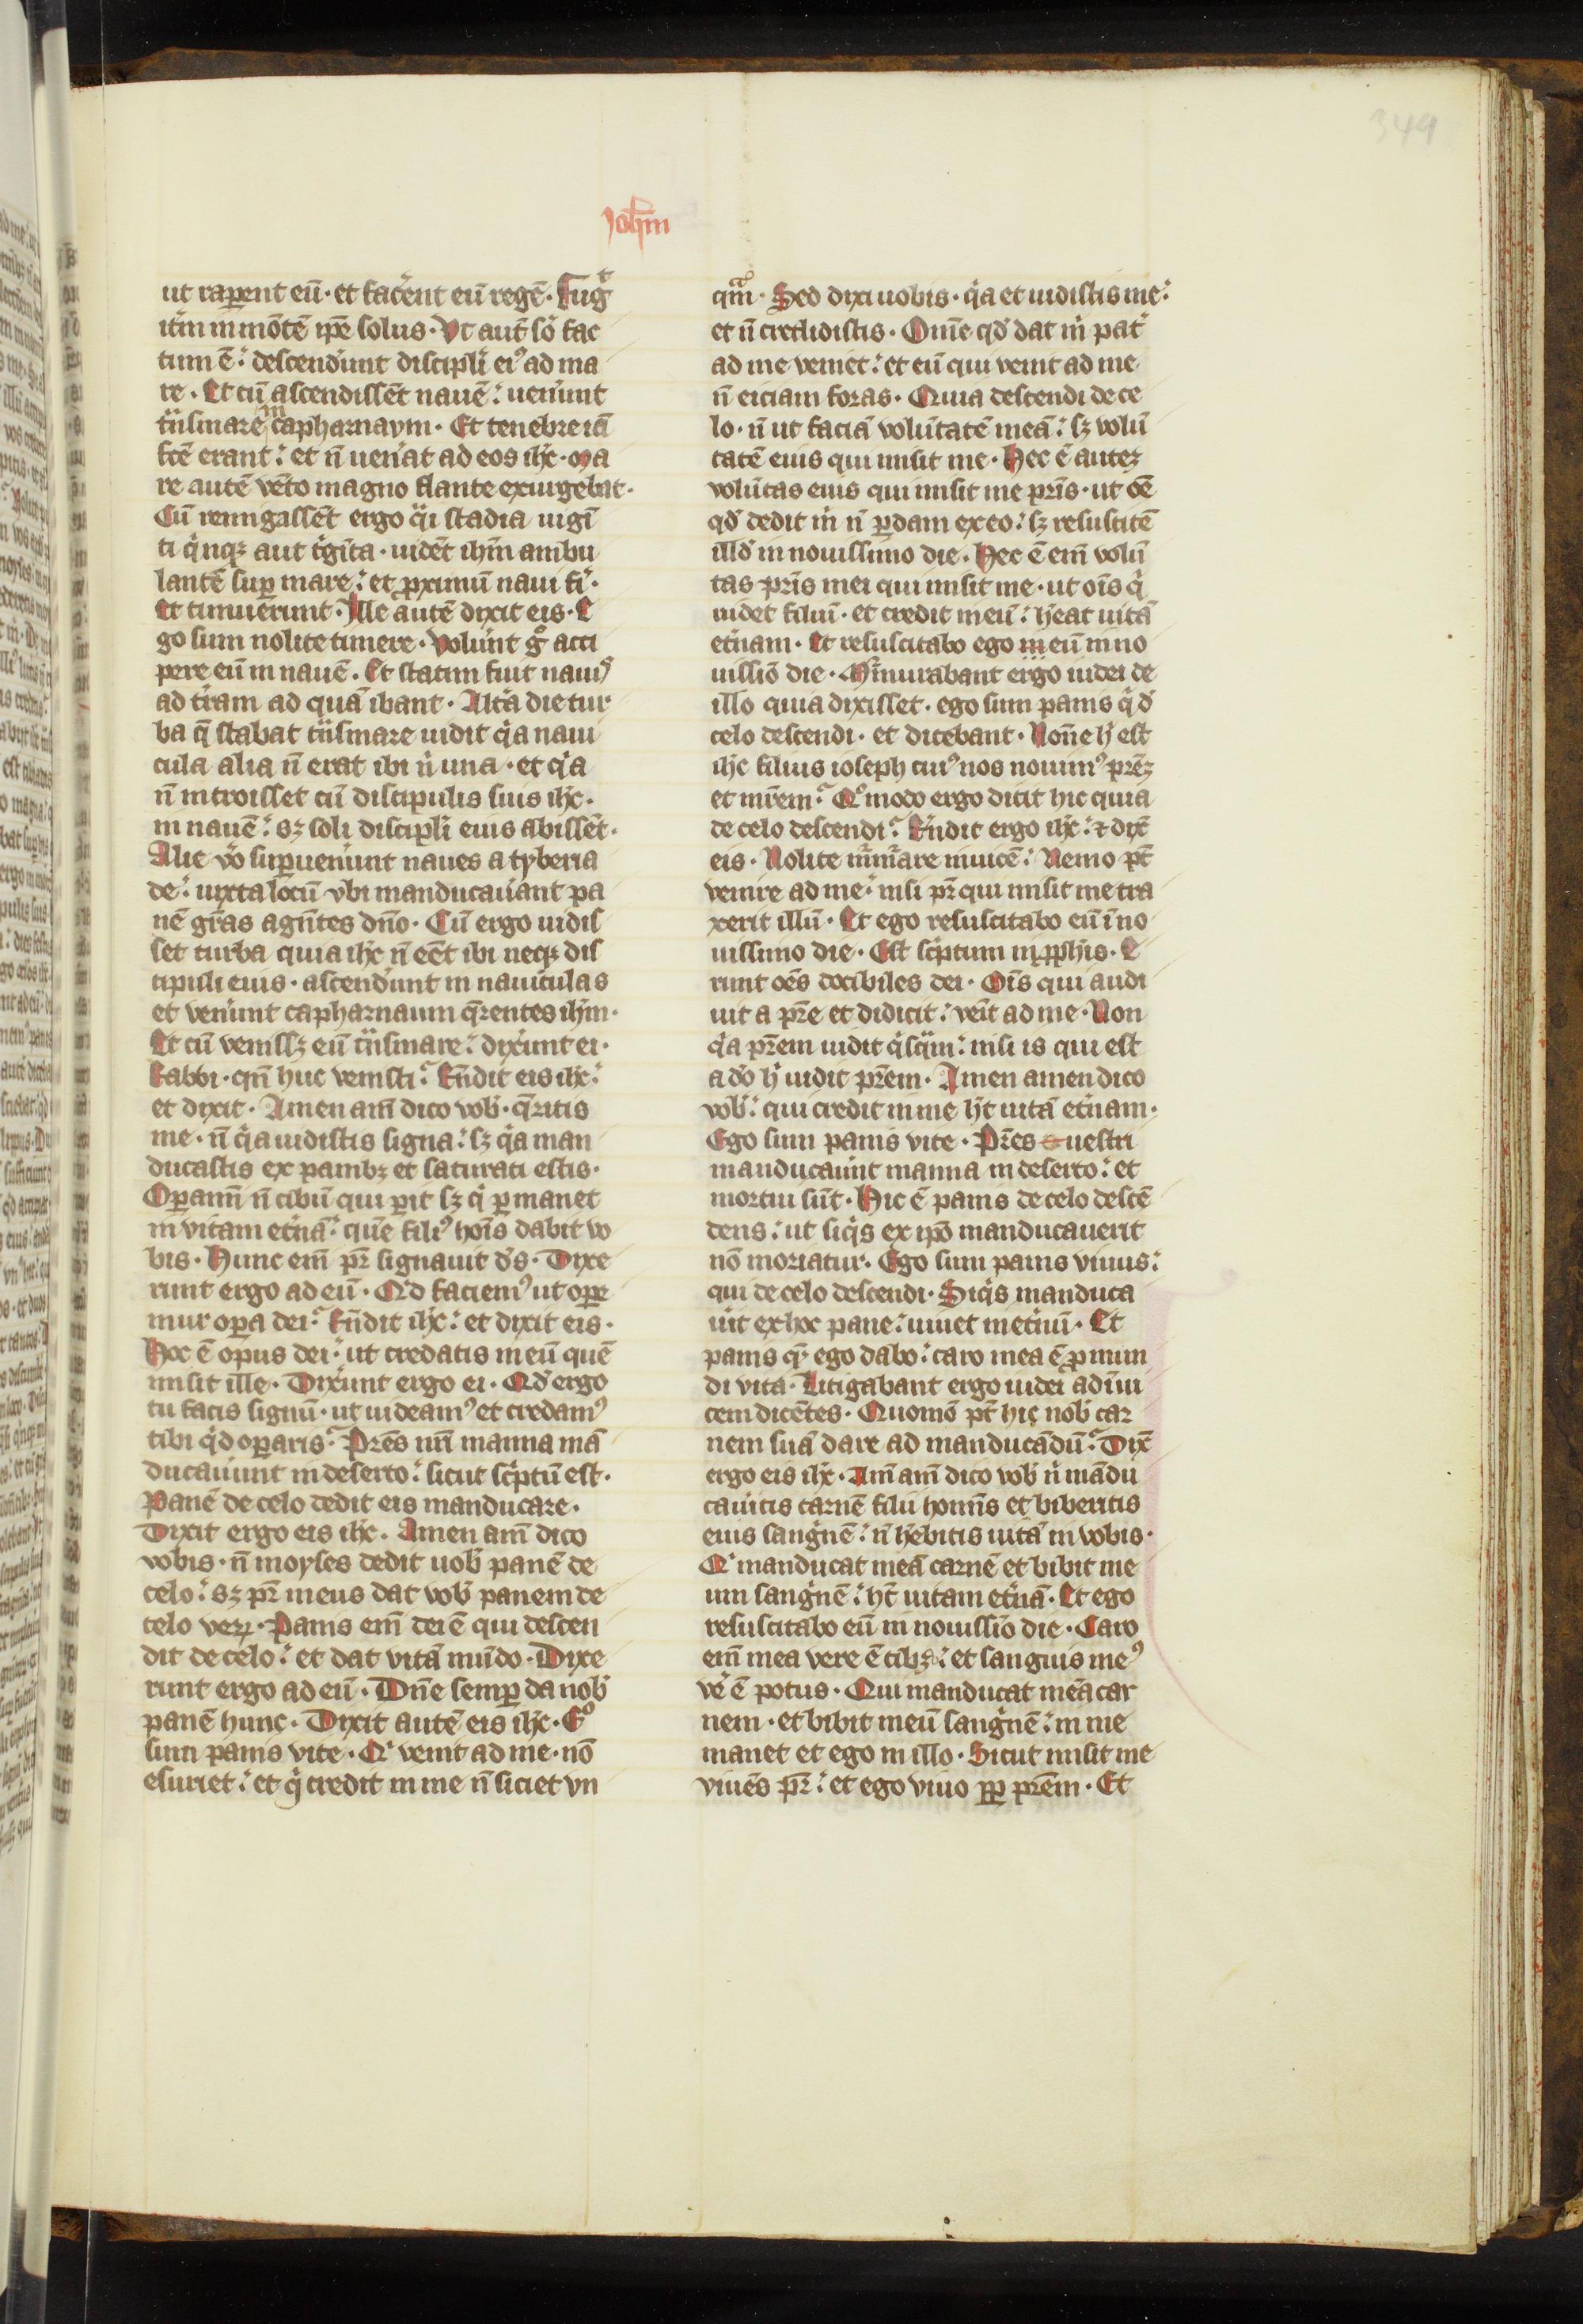 349
Ioh̄m
ut rap̱ent eū · et fac̓ent eū regē · Fug̓t
it̓m in mōtē ip̄e solus · Vt aut̄ so̓ fac
tum ē : descend̓unt discipl̓i ei⁹ ad ma
re · Et cū ascendissēt nauē : uen̓unt
t̓nsmare in capharnaym · Et tenebre iā
fc̄e erant : et n̄ uen̓at ad eos ih̄c · Ma
re autē vēto magno flante exurgebat ·
Cū remigassēt ergo q̓si stadia uigī
ti q̓nqꝫ aut t̓gīta · uidēt ih̄m ambu
lantē sup̱ mare : et ꝓximū naui fi̓ ·
Et timuerunt · Ille autē dixit eis · E
go sum nolite timere · Volu̓nt g̊ acci
pere eū in nauē · Et statim fuit nauis
ad t̓ram ad quā ibant · Alt̓a die tur
ba q̄ stabat t̓nsmare uidit q̓a naui
cula alia n̄ erat ibi n̓ una · et q̓a
n̄ introisset cū discipulis suis ih̄c ·
in nauē : sꝫ soli discipl̓i eius abissēt ·
Alie v̓o sup̱uen̓unt naues a tyberia
de : iuxta locū vbi manducau̓ant pa
nē gr̄as agn̄tes dn̄o · Cū ergo uidis
set turba quia ih̄c n̄ eēt ibi neqꝫ dis
cipuli eius · ascend̓unt in nauiculas
et ven̓unt capharnaum q̄rentes ih̄m ·
Et cū venissꝫ eū t̓nsmare : dix̓unt ei ·
Rabbi · qn̄ huc venisti : R̄ndit eis ih̄c :
et dixit · Amen am̄ dico vob̓ · q̄ritis
me · n̄ q̓a uidistis signa : sꝫ q̓a man
ducastis ex panibꝫ et saturati estis ·
Op̱amī n̄ cibū qui p̱it sꝫ q̓ p̱manet
in vitam et̓nā : quē fili⁹ hoīs dabit vo
bis · Hunc em̄ pr̄ signauit d̓s · Dixe
runt ergo ad eū · Qd̓ faciem⁹ ut ope
mur op̱a dei : R̄ndit ih̄c : et dixit eis ·
Hoc ē opus dei : ut credatis in eū quē
misit ille · Dix̓unt ergo ei · Qd̓ ergo
tu facis signū · ut uideam⁹ et credam⁹
tibi q̓d op̱aris : Pr̄es nr̄i manna mā
ducau̓unt in deserto : sicut sc̓ptū est ·
Panē de celo dedit eis manducare ·
Dixit ergo eis ih̄c · Amen am̄ dico
vobis · n̄ moyses dedit uob̓ panē de
celo : sꝫ pr̄ meus dat vob̓ panem de
celo veꝝ · Panis em̄ dei ē qui descen
dit de celo : et dat vitā mūdo · Dixe
runt ergo ad eū · Dn̄e semp̱ da nob̓
panē hunc · Dixit autē eis ih̄c · E̊
sum panis vite · Q̓ venit ad me · nō
esuriet : et q̓ credit in me n̄ siciet vn
qm̄ · Sed dixi uobis · q̓a et uidistis me :
et n̄ credidistis · Om̄e qd̓ dat m̓ pat̓
ad me veniet : et eū qui venit ad me
n̄ eiciam foras · Quia descendi de ce
lo · n̄ ut faciā volūtatē meā : sꝫ volū
tatē eius qui misit me · Hec ē autez
volūtas eius qui misit me pr̄is · ut oē
qd̓ dedit m̓ n̄ p̱dam ex eo : sꝫ resuscitē
illd̓ in nouissimo die · Hec ē em̄ volū
tas pr̄is mei qui misit me · ut oīs q̓
uidet filiū · et credit in eū : h̄eat uitā
et̓nam · Et resuscitabo ego in eū in no
uissiō die · Mur̓murabant ergo iudei de
illo quia dixisset · ego sum panis q̓ d̓
celo descendi · et dicebant · Non̄e h̓ est
ih̄c filius ioseph cui⁹ nos nouim⁹ pr̄eꝫ
et mr̄em : Q̊modo ergo dicit hic quia
de celo descendi : R̄ndit ergo ih̄c : ⁊ dix̄
eis · Nolite m̓m̓are inuicē : Nemo pt̄
venire ad me : nisi pr̄ qui misit me tra
xerit illū · Et ego resuscitabo eū ī no
uissimo die · Est sc̓ptum in ꝓph̄is · E
runt oēs docibiles dei · Oīs qui audi
uit a pr̄e et didicit : ven̄it ad me · Non
q̓a pr̄em uidit q̓sq̓m : nisi is qui est
a d̓o h̓ uidit pr̄em · Amen amen dico
vob̓ : qui credit in me h̄t uitā et̓nam ·
Ego sum panis vite · Pr̄es uestri
manducau̓nt manna in deserto : et
mortui sūt · Hic ē panis de celo descē
dens : ut siq̓s ex ip̄o manducauerit
nō moriatur · Ego sum panis viuus :
qui de celo descendi · Siq̓s manduca
u̓it ex hoc pane : uiuet in et̓nū · Et
panis q̓ ego dabo : caro mea ē ꝓ mun
di vita · Litigabant ergo iudei ad inui
cem dicētes · Quomō pt̄ hic nob̓ car
nem suā dare ad manducādū : Dix̄
ergo eis ih̄c · Am̄ am̄ dico vob̓ n̓ mādu
cau̓itis carnē filii hominis et biberitis
eius sang̓nē : n̄ h̄ebitis uitā in vobis ·
Q̓ manducat meā carnē et bibit me
um sang̓nē : ht̄ uitam et̓nā · Et ego
resuscitabo eū in nouissiō die · Caro
em̄ mea vere ē cibꝫ : et sanguis me⁹
ve̓ ē potus · Qui manducat meā car
nem · et bibit meū sang̓nē : in me
manet et ego in illo · Sicut misit me
viuēs pr̄ : et ego viuo ꝓp̱ pr̄em · Et